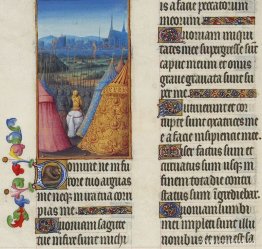 Domine ne in fu
rore tuo arguas
me neqз in ira tua corri
pias me.
Quoniam sagitte
tue infixe sunt michi
is a facie peccatorum
meorum.
Quoniam iniqui
tates mee supergresse sūt
caput meum et onus
graue grauata sunt su
per me.
Putruerunt et cor
rupte sunt cicatrices me
e a facie insipiencie mee.
Miser factus sum et
curuatus sum usqз in
finem tota die contri
status sum īgrediebar.
Quoniam lumbi
mei impleti sunt illu
sionibus et non est sani